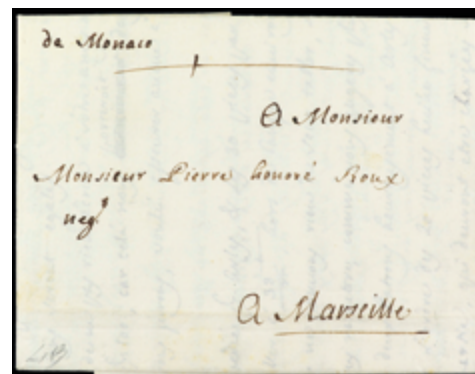 de Monaco
A Monsieur
Monsieur Pierre honoré Roux
negt
A Marseille